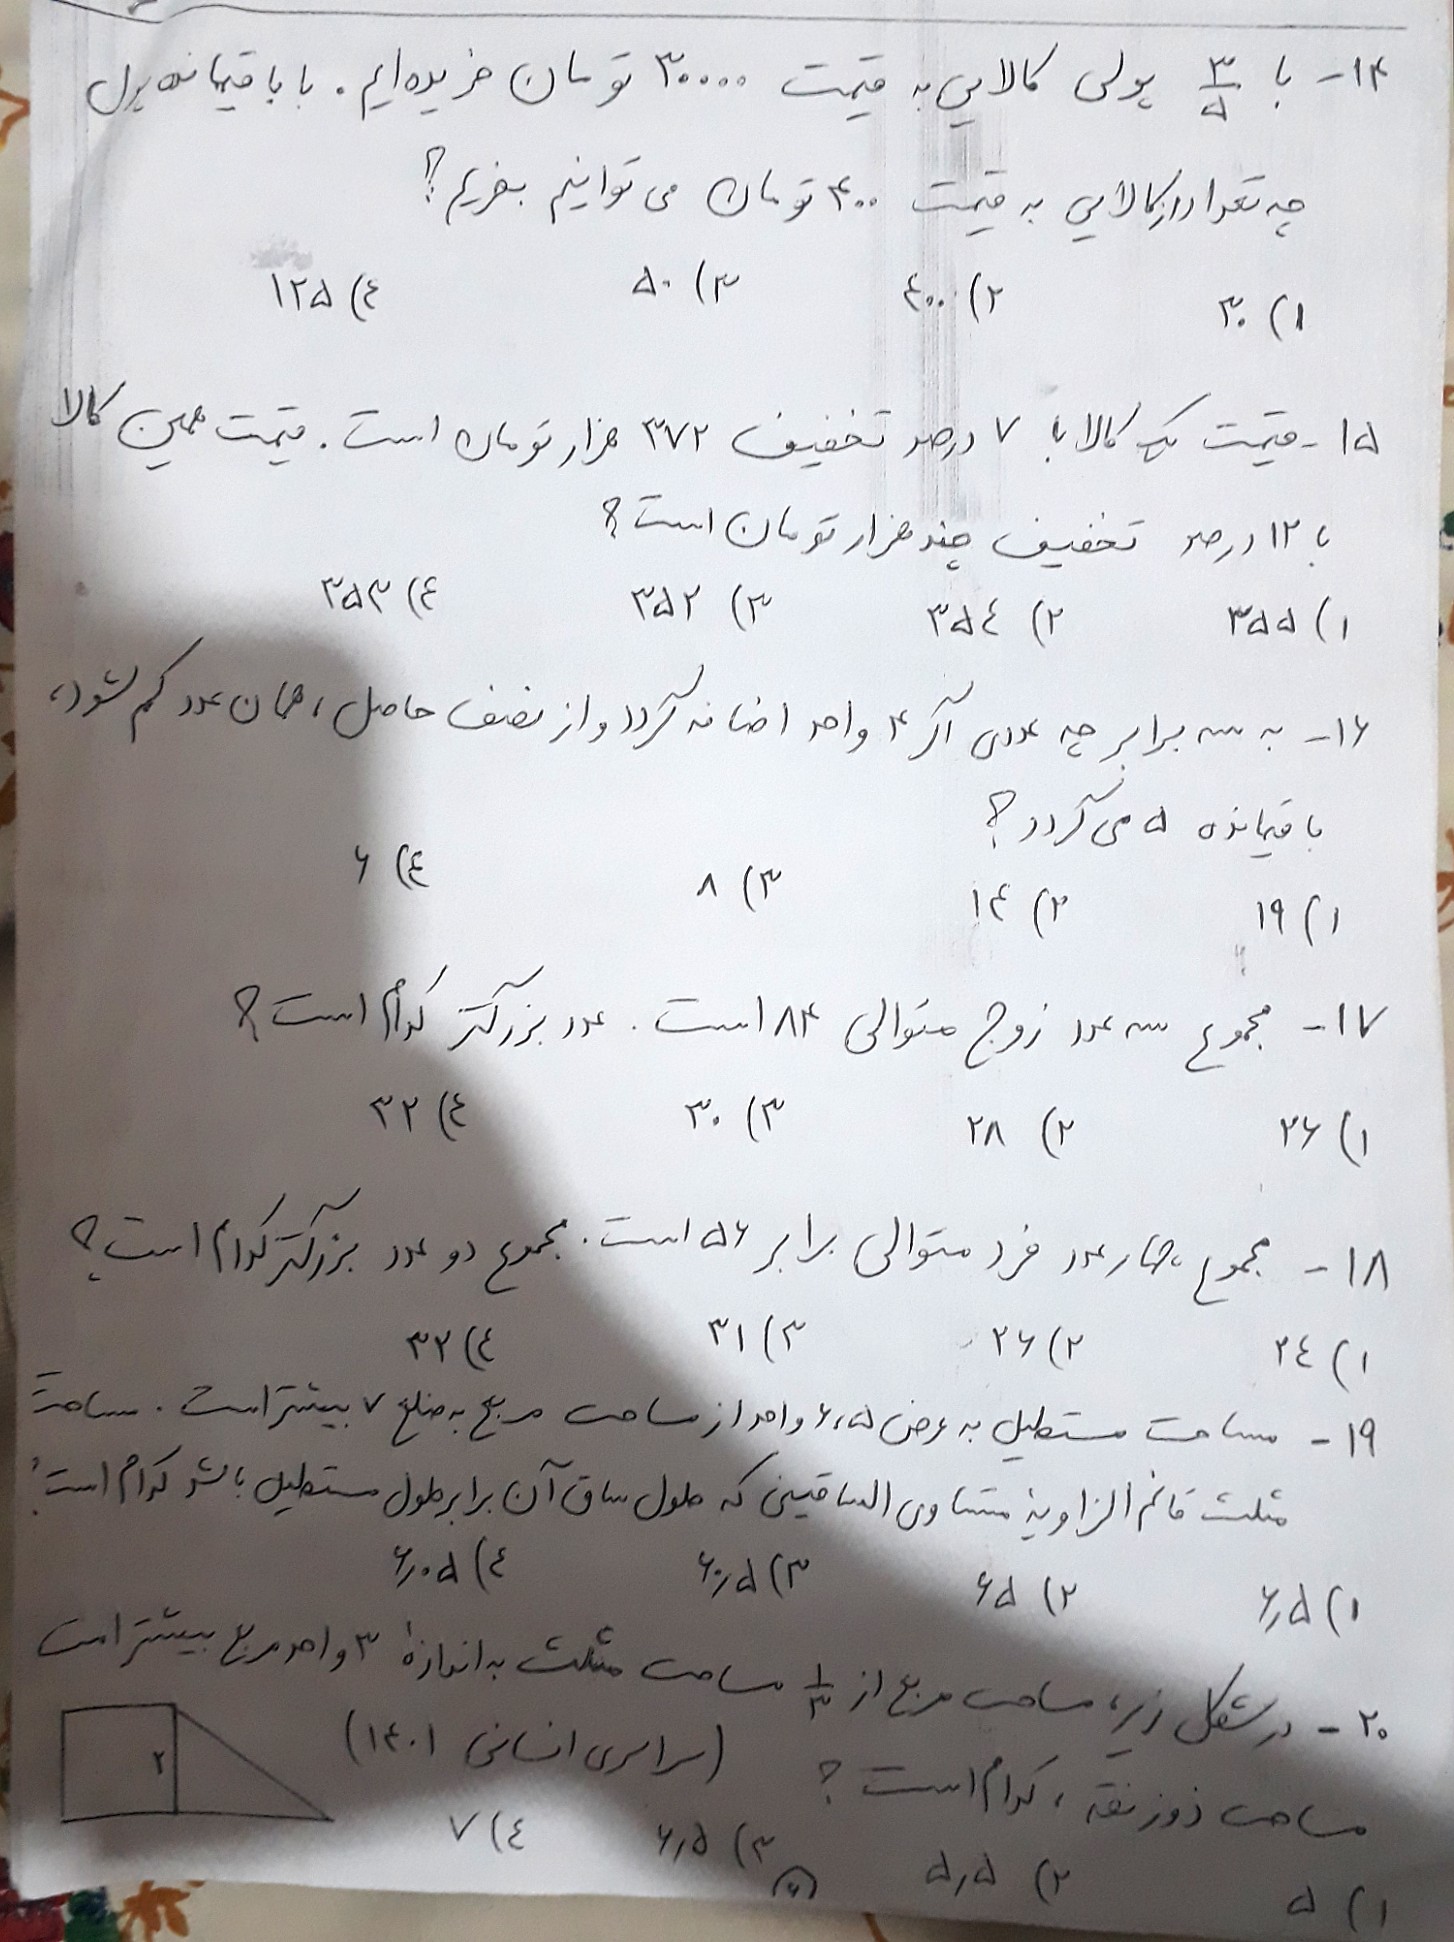 ۱۴- با ۳/۵ پولی کالایی به قیمت ۳۰۰۰۰ تومان خریده‌ایم. با باقیمانده پول
چه تعداد از کالایی به قیمت ۴۰۰ تومان می توانیم بخریم؟
۱) ۳۰ ۲) ۴۰۰ ۳) ۵۰ ۴) ۱۲۵
۱۵- قیمت یک کالا با ۷ درصد تخفیف ۳۷۲ هزار تومان است. قیمت همین کالا
با ۱۲ درصد تخفیف چند هزار تومان است؟
۱) ۳۵۵ ۲) ۳۵۴ ۳) ۳۵۲ ۴) ۳۵۳
۱۶- به سه برابر چه عددی اگر ۴ واحد اضافه گردد و از نصف حاصل، همان عدد کم شود،
باقیمانده ۵ می گردد؟
۱) ۱۹ ۲) ۱۴ ۳) ۸ ۴) ۶
۱۷- مجموع سه عدد زوج متوالی ۸۴ است. عدد بزرگتر کدام است؟
۱) ۲۶ ۲) ۲۸ ۳) ۳۰ ۴) ۳۲
۱۸- مجموع چهار عدد فرد متوالی برابر ۵۶ است. مجموع دو عدد بزرگتر کدام است؟
۱) ۲۴ ۲) ۲۶ ۳) ۳۱ ۴) ۳۲
۱۹- مساحت مستطیل به عرض ۵، ۶ واحد از مساحت مربع به ضلع ۷ بیشتر است. مساحت
مثلث قائم الزاویهٔ متساوی الساقینی که طول ساق آن برابر طول مستطیل باشد کدام است؟
۱) ۶٫۵ ۲) ۶۵ ۳) ۶۰٫۵ ۴) ۶٫۰۵
۲۰- در شکل زیر، مساحت مربع از ۱/۳ مساحت مثلث به اندازهٔ ۳ واحد مربع بیشتر است
مساحت ذوزنقه، کدام است؟ (سراسری انسانی ۱۴۰۱)
۲
۱) ۵ ۲) ۵٫۵ ۳) ۶٫۵ ۴) ۷